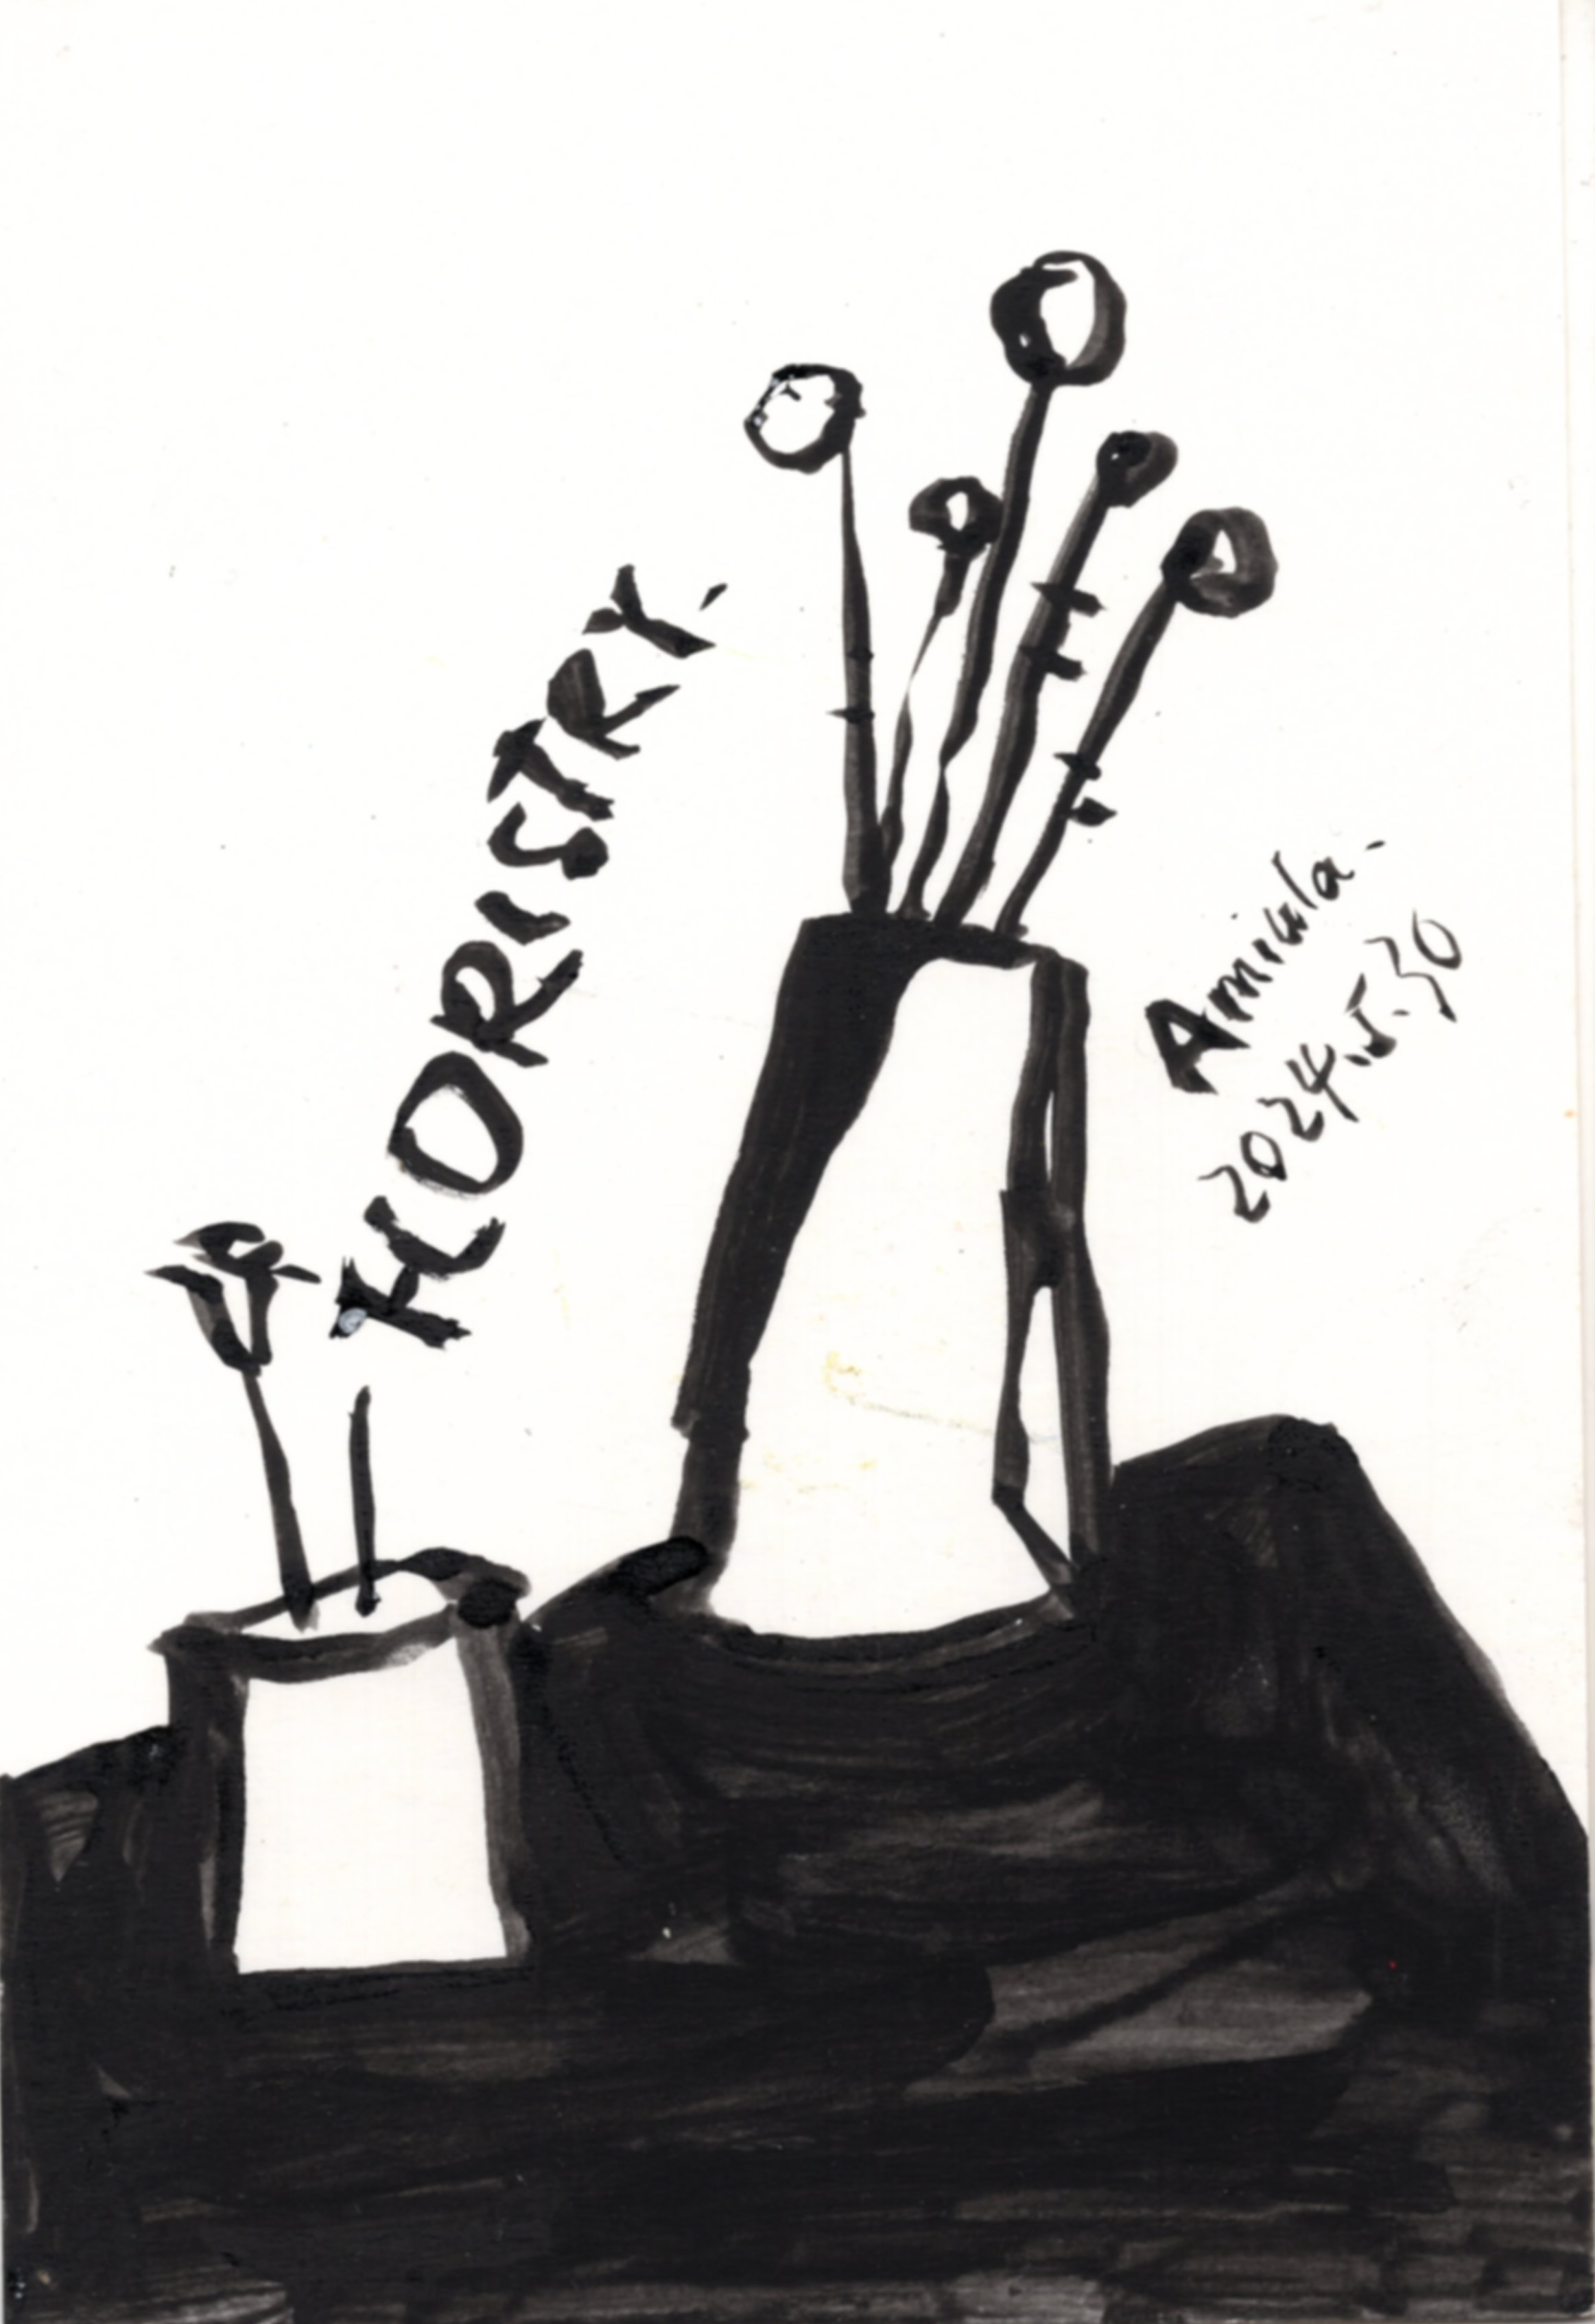 FLORISTRY.
Amiala.
2024.5.30